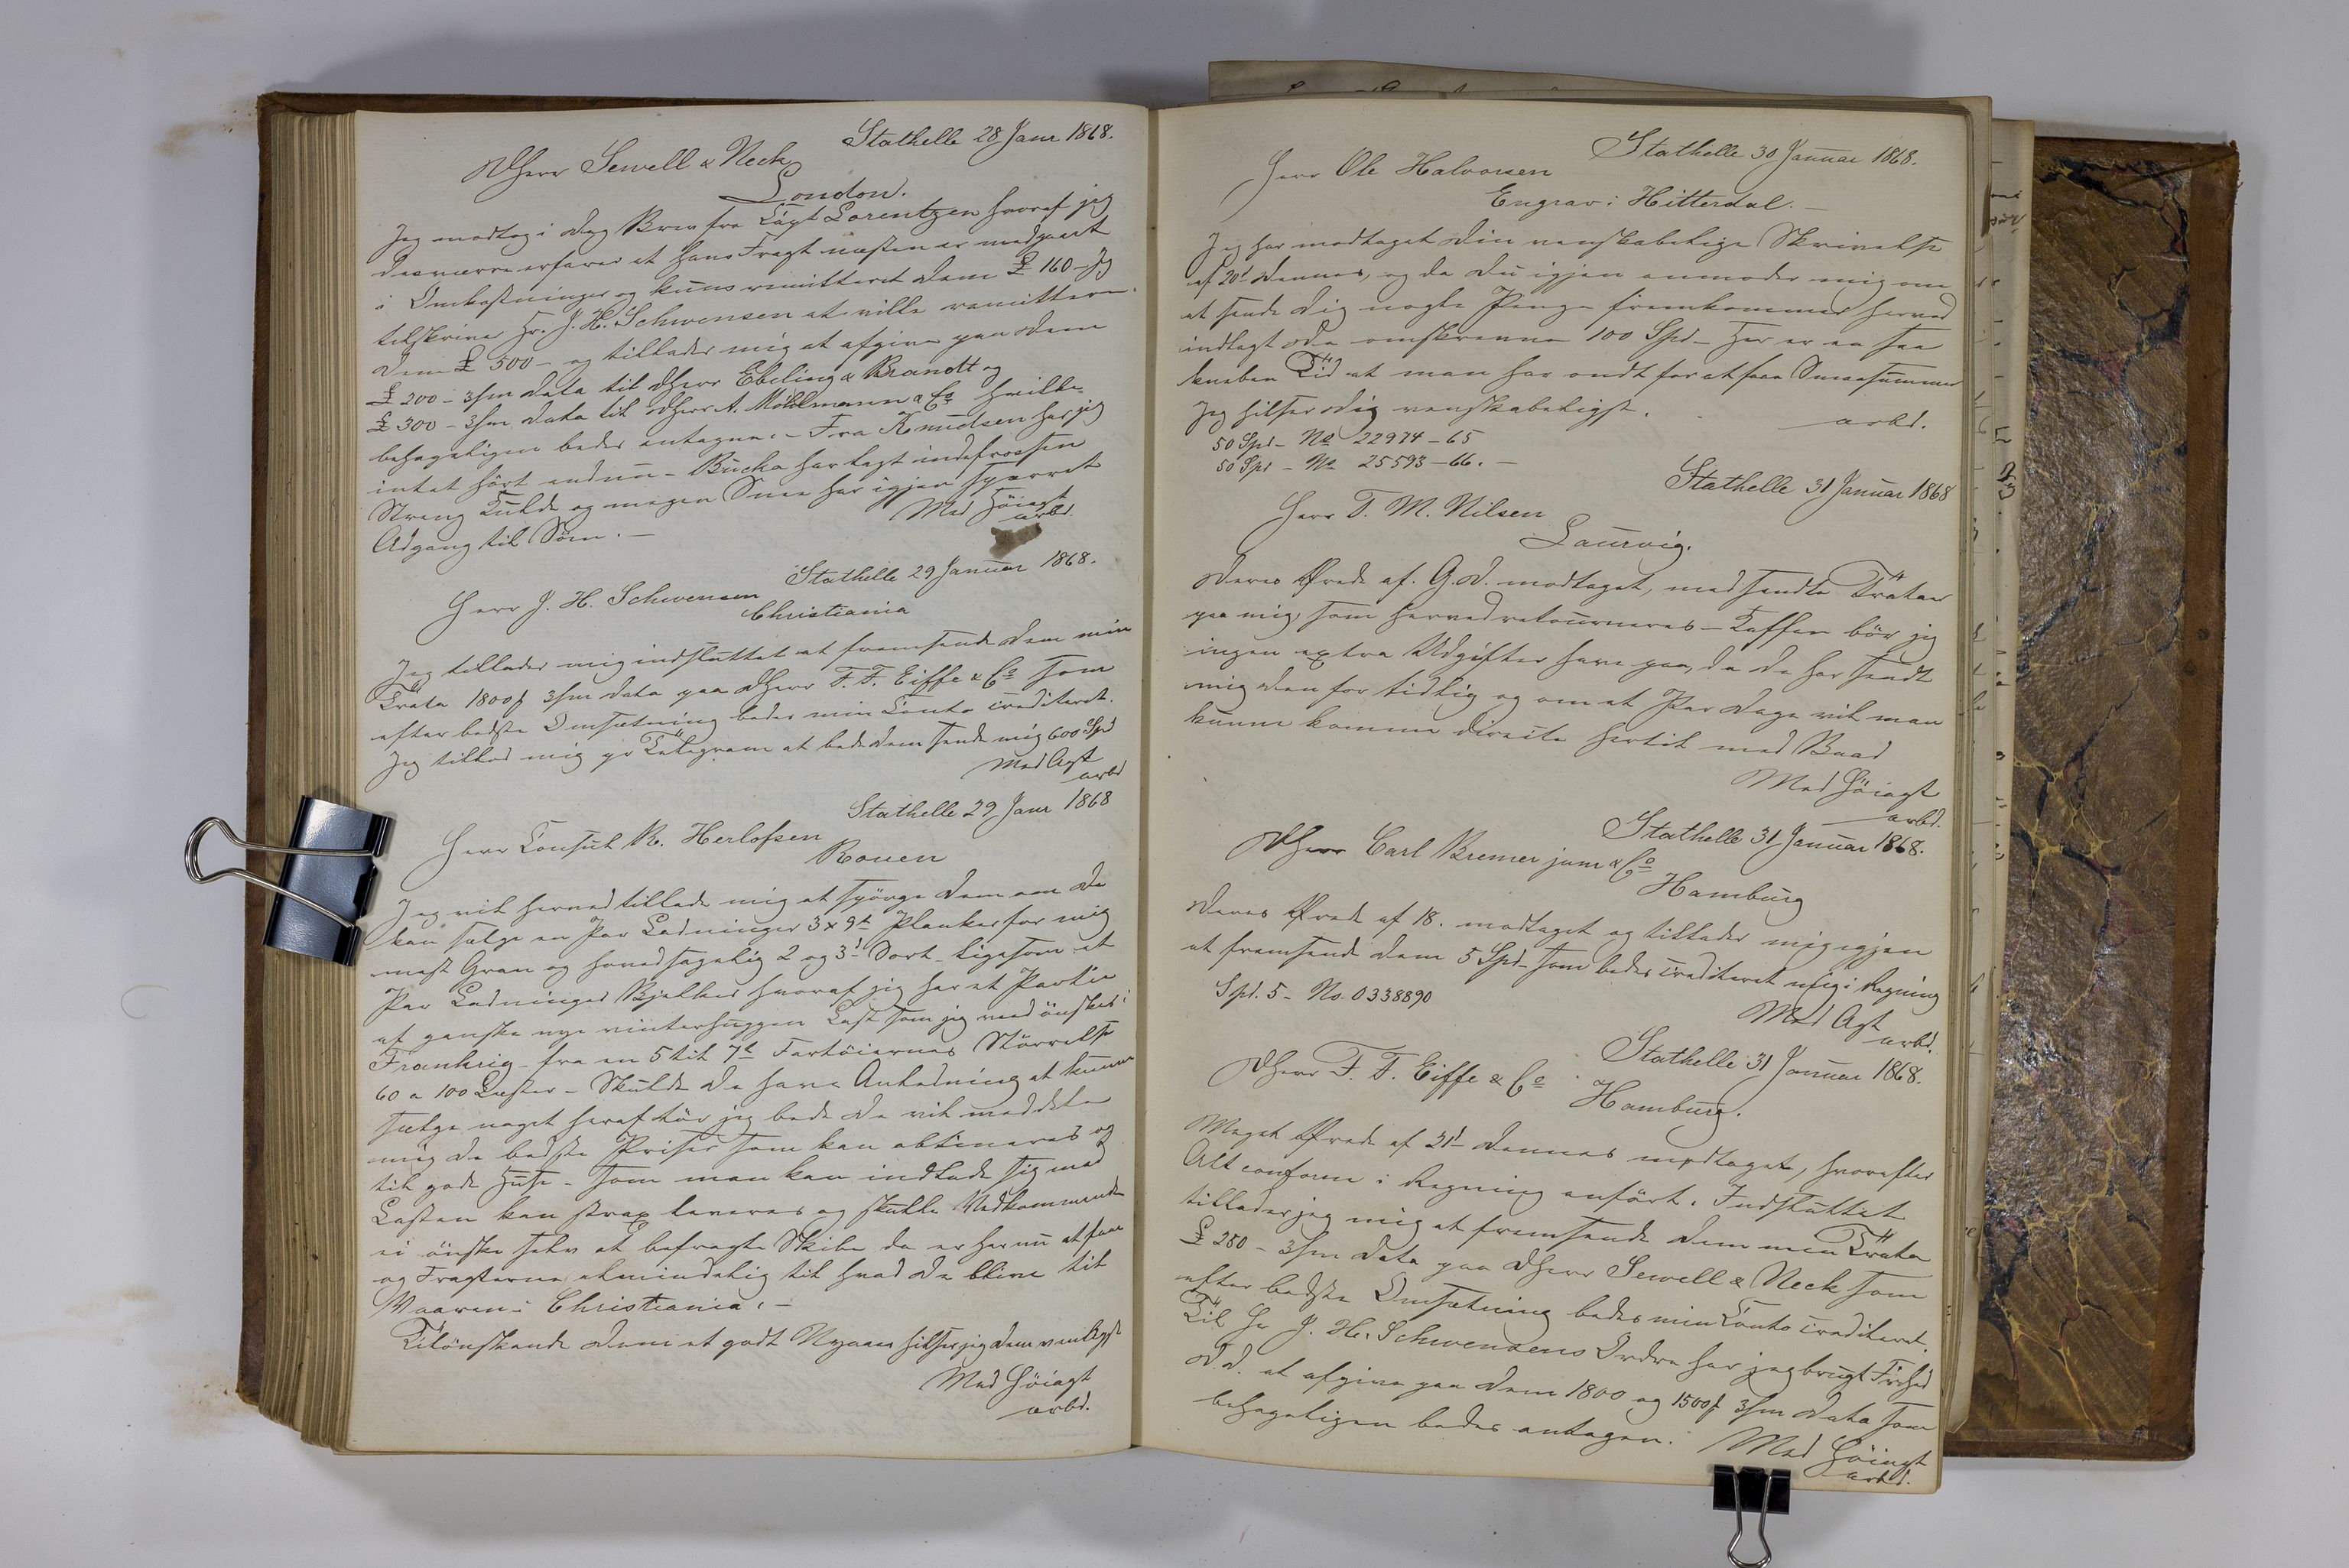 Stathelle 28 Janr 1868.
DHerr Sewell & Neck
London.
Jeg modtog i Dag Brev fra Capt Lorentzen hvoraf jeg
desværre erfarer at hans Fragt næsten er medgaaet
i Omkostninger og kuns remitteret Dem £ 160 – Jeg
tilskriver Hr. J. H. Schwensen at ville remittere
Dem £ 500 – og tillader mig at afgive paa Dem
£ 200 – 3/m dato til DHerr Ebeling & Brandt og
£ 300 – 3/m dato til DHerr A. Mohlmann & Co hvilke
behageligen bedes antagne. – Fra Knudsen har jeg
intet hört endnu – Bucka har lagt indefrossen
Streng Kulde og megen Snee har igjen spærret
Adgang til Söen. –
Med Höiagt
arbd.
Stathelle 29 Januar 1868.
Herr J. H. Schwensen
Christiania
Jeg tillader mig indsluttet at fremsende Dem min
Trata 1800 ƒ 3/m dato paa DHerr F. F. Eiffe & Co som
efter bedste Omsætning bedes min Conto crediteret.
Jeg tillod mig pr Telegram at bede Dem sende mig 600 Spd
Med Agt
arbd
Stathelle 29 Janr 1868
Herr Consul R. Herlofsen
Rouen
Jeg vil herved tillade mig at spörge Dem om De
kan sælge en Par Ladninger 3 x 9t Planker for mig
mest Gran og hovedsagelig 2 og 3d Sort – ligesom et
Par Ladninger Bjelker hvoraf jeg har et Partie
af ganske nye vinterhuggen Last som jeg med önskes i
Frankrig fra en 5 til 7t Fartöiernes Störrelse
60 a 100 Læster – Skulde De have Anledning at kunne
sælge noget heraf tör jeg bede De vil meddele
mig de bedste Priser som kan obtineres og
til gode Huse – som man kan indlade sig med
Lasten kan strax leveres og skulle Vedkommende
ei önske selv at befragte Skibe da er her nu at faae
og Fragterne almindelig til hvad de blive til
Vaaren i Christiania. –
Tilönskende Dem et godt Nyaar hilser jeg Dem venligst
Med Höiagt
arbd.
Stathelle 30 Januar 1868.
Herr Ole Halvorsen
Engrav i Hitterdal. –
Jeg har modtaget Din venskabelige Skrivelse
af 20d dennes, og da Du igjen anmoder mig om
at sende Dig nogle Penge fremkommer herved
indlagt de omskrevne 100 Spd – Her er en saa
knebben Tid at man har ondt for at faae Smaasummer
Jeg hilser Dig venskabeligst.
arbd.
50 Spd – No 22974 – 65
50 Spd – No 25593 – 66. –
Stathelle 31 Januar 1868
Herr T. M. Nilsen
Laurvig.
Deres Ærede af. G. D. modtaget, med sendte Tratter
paa mig, som herved retourneres – Kaffen bör jeg
ingen extra Udgifter have paa, da De har sendt
mig den for tidlig og om et Par Dage vil man
kunne komme directe hertil med Baad
Med Höiagt
arbd.
Stathelle 31 Januar 1868.
DHerr Carl Bremer junr & Co
Hamburg
Deres Ærede af 18. modtaget og tillader mig igjen
at fremsende Dem 5 Spd – som bedes crediteret mig i Regning
Spd. 5 – No. 0338890
Med Agt
arbd.
Stathelle 31 Januar 1868.
DHerr F. F. Eiffe & Co
Hamburg.
Meget Ærede af 21d dennes modtaget, hvorefter
Alt conform i Regning anfört. Indsluttet
tillader jeg mig at fremsende Dem min Trata
£ 250 – 3/m dato paa DHerr Sewell & Neck som
efter bedste Omsætning bedes min Conto crediteret.
Til Hr J. H. Schwensens Ordre har jeg brugt Frihed
D. D. at afgive paa Dem 1800 og 1500 ƒ 3/m dato som
behageligen bedes antagen.
Med Höiagt
arbd.